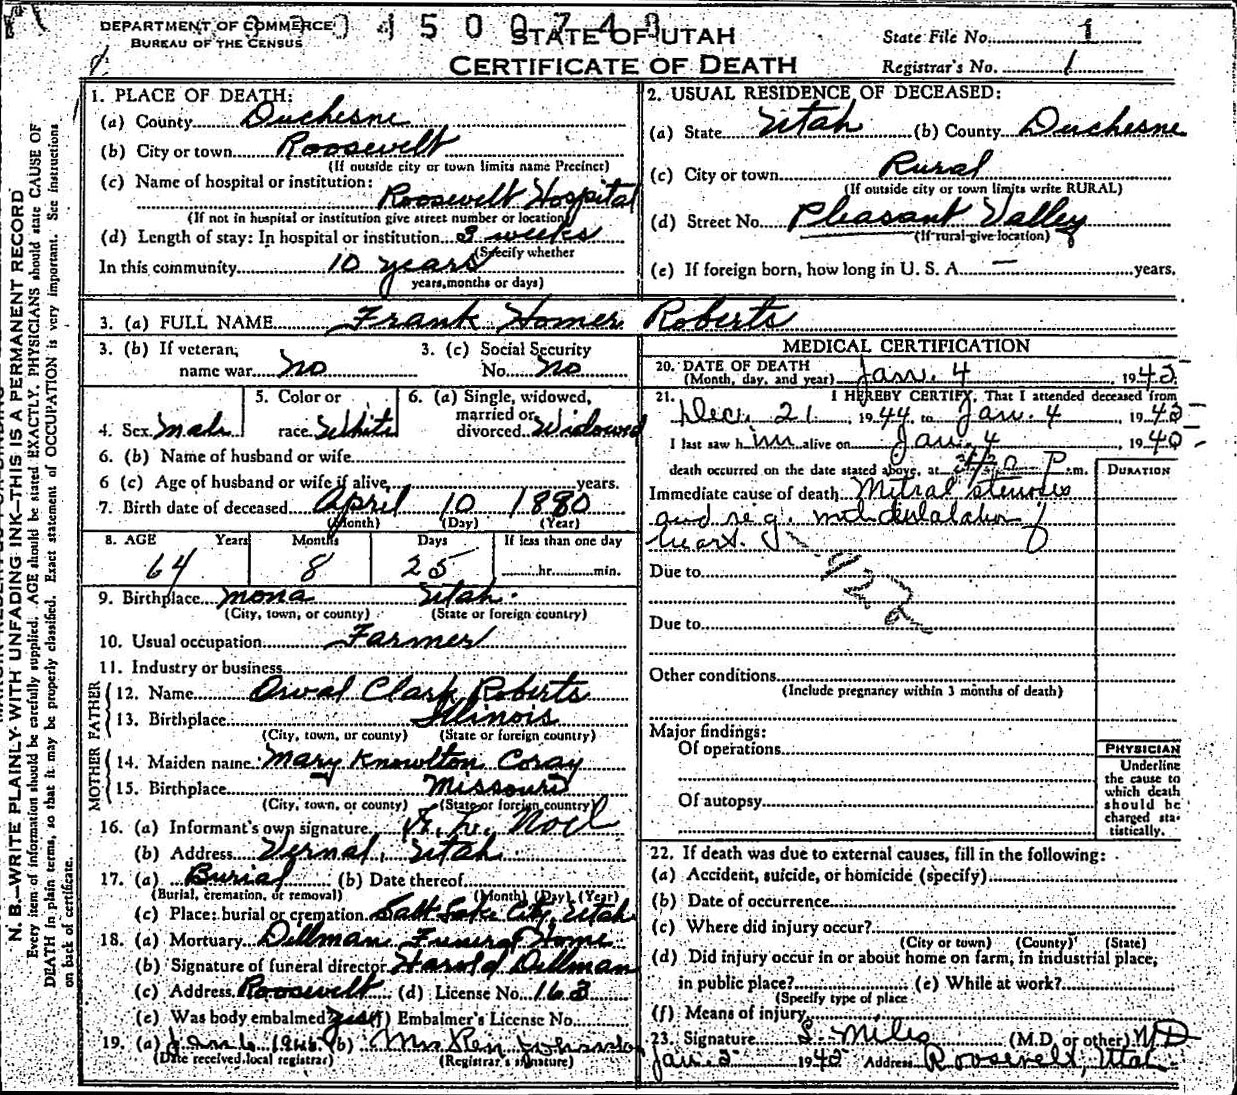 DEPARTMENT OF COMMERCE
BUREAU OF THE CENSUS
STATE OF UTAH
CERTIFICATE OF DEATH
State File No. 1
Registrar's No. 1
N. B.—WRITE PLAINLY WITH UNFADING INK—THIS IS A PERMANENT RECORD
Every item of information should be carefully supplied. AGE should be stated EXACTLY. PHYSICIANS should state CAUSE OF
DEATH in plain terms, so that it may be properly classified. Exact statement of OCCUPATION is very important. See instructions
on back of certificate.
1. PLACE OF DEATH:
(a) County Duchesne
(b) City or town Roosevelt
(If outside city or town limits name Precinct)
(c) Name of hospital or institution:
Roosevelt Hospital
(If not in hospital or institution give street number or location)
(d) Length of stay: In hospital or institution weeks
(Specify whether
In this community 10 years
years, months or days)
2. USUAL RESIDENCE OF DECEASED:
(a) State Utah (b) County Duchesne
(c) City or town Rural
(If outside city or town limits write RURAL)
(d) Street No. Pleasant Valley
(If rural give location)
(e) If foreign born, how long in U. S. A. — years.
3. (a) FULL NAME Frank Homer Roberts
3. (b) If veteran, name war no
3. (c) Social Security No. no
4. Sex Male
5. Color or race White
6. (a) Single, widowed, married or divorced Widowed
6. (b) Name of husband or wife
6 (c) Age of husband or wife if alive years.
7. Birth date of deceased April 10 1880
(Month) (Day) (Year)
8. AGE Years Months Days If less than one day
64 8 25 hr. min.
9. Birthplace Mona Utah
(City, town, or county) (State or foreign country)
10. Usual occupation Farmer
11. Industry or business
FATHER
12. Name Orval Clark Roberts
13. Birthplace Illinois
(City, town, or county) (State or foreign country)
MOTHER
14. Maiden name Mary Knowlton Coray
15. Birthplace Missouri
(City, town, or county) (State or foreign country)
16. (a) Informant's own signature Noel
(b) Address Vernal, Utah
17. (a) Burial (b) Date thereof
(Burial, cremation, or removal) (Month) (Day) (Year)
(c) Place: burial or cremation Salt Lake City, Utah
18. (a) Mortuary Dillman Funeral Home
(b) Signature of funeral director Harold Dillman
(c) Address Roosevelt (d) License No. 163
(e) Was body embalmed? yes (f) Embalmer's License No.
19. (a) Jan 6 1945 (b) Mrs Ken Johnston
(Date received local registrar) (Registrar's signature)
MEDICAL CERTIFICATION
20. DATE OF DEATH
(Month, day, and year) Jan. 4, 1945
21. I HEREBY CERTIFY, That I attended deceased from
Dec. 21, 1944 to Jan. 4, 1945
I last saw him alive on Jan. 4 1945
death occurred on the date stated above, at P. m.
DURATION
Immediate cause of death Mitral stenosis
and reg. of
heart.
922
Due to
Due to
Other conditions
(Include pregnancy within 3 months of death)
Major findings:
Of operations
Of autopsy
PHYSICIAN
Underline
the cause to
which death
should be
charged sta-
tistically.
22. If death was due to external causes, fill in the following:
(a) Accident, suicide, or homicide (specify)
(b) Date of occurrence
(c) Where did injury occur?
(City or town) (County) (State)
(d) Did injury occur in or about home on farm, in industrial place,
in public place? (e) While at work?
(Specify type of place
(f) Means of injury
23. Signature S. Miles (M.D. or other) MD
Jan. 5 1945 Address Roosevelt, Utah